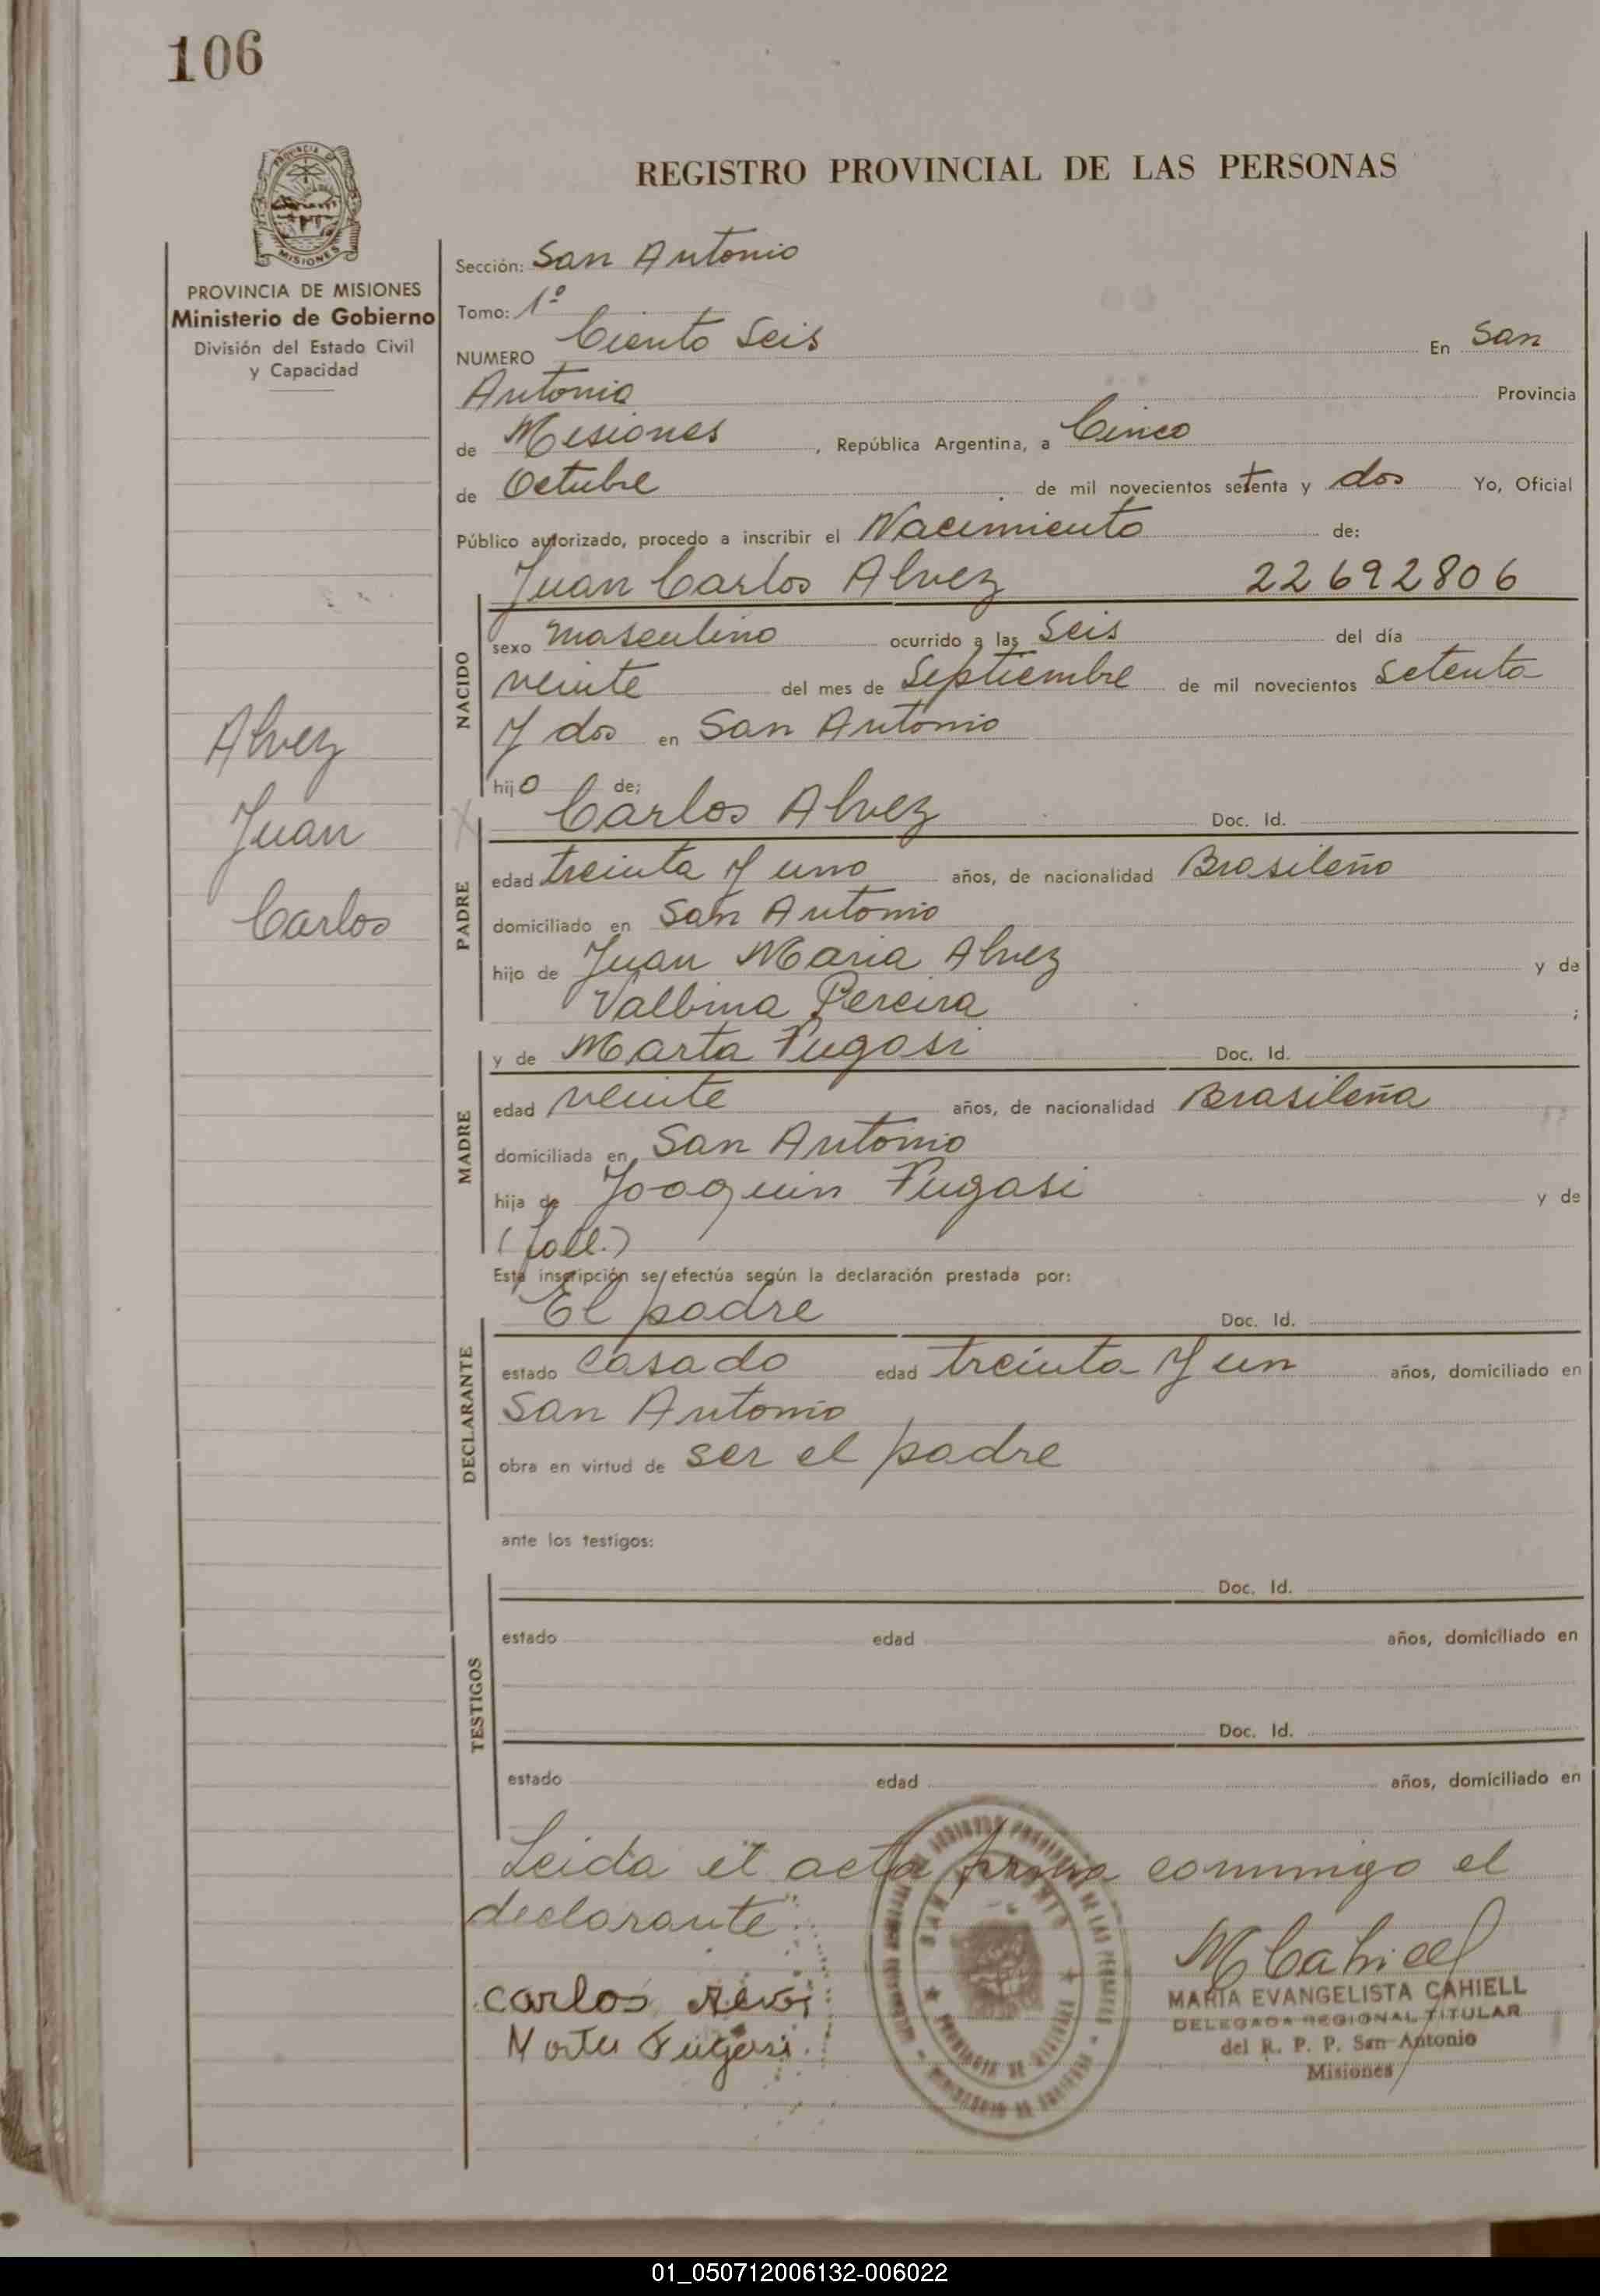 106
PROVINCIA DE MISIONES
Ministerio de Gobierno
División del Estado Civil
y Capacidad
Alvez
Juan
Carlos
REGISTRO PROVINCIAL DE LAS PERSONAS
Sección: San Antonio
Tomo: 1º
NUMERO Ciento Seis En San
Antonio Provincia
de Misiones, República Argentina, a Cinco
de Octubre de mil novecientos setenta y dos Yo, Oficial
Público autorizado, procedo a inscribir el Nacimiento de:
Juan Carlos Alvez 22692806
NACIDO
sexo masculino ocurrido a las Seis del día
veinte del mes de Septiembre de mil novecientos Setenta
y dos en San Antonio
hijo de;
Carlos Alvez Doc. Id.
PADRE
edad treinta y uno años, de nacionalidad Brasileño
domiciliado en San Antonio
hijo de Juan Maria Alvez y de
Valbina Pereira ;
y de Marta Fugasi Doc. Id.
MADRE
edad veinte años, de nacionalidad Brasileña
domiciliada en San Antonio
hija de Joaquin Fugasi y de
(fall.)
Esta inscripción se efectúa según la declaración prestada por:
El padre Doc. Id.
DECLARANTE
estado casado edad treinta y un años, domiciliado en
San Antonio
obra en virtud de ser el padre
ante los testigos:
Doc. Id.
TESTIGOS
estado edad años, domiciliado en
Doc. Id.
estado edad años, domiciliado en
Leida el acta firma conmigo el
declarante
Carlos
Fugasi
MCahiell
MARIA EVANGELISTA CAHIELL
DELEGADA REGIONAL TITULAR
del R. P. P. San Antonio
Misiones
01_050712006132-006022